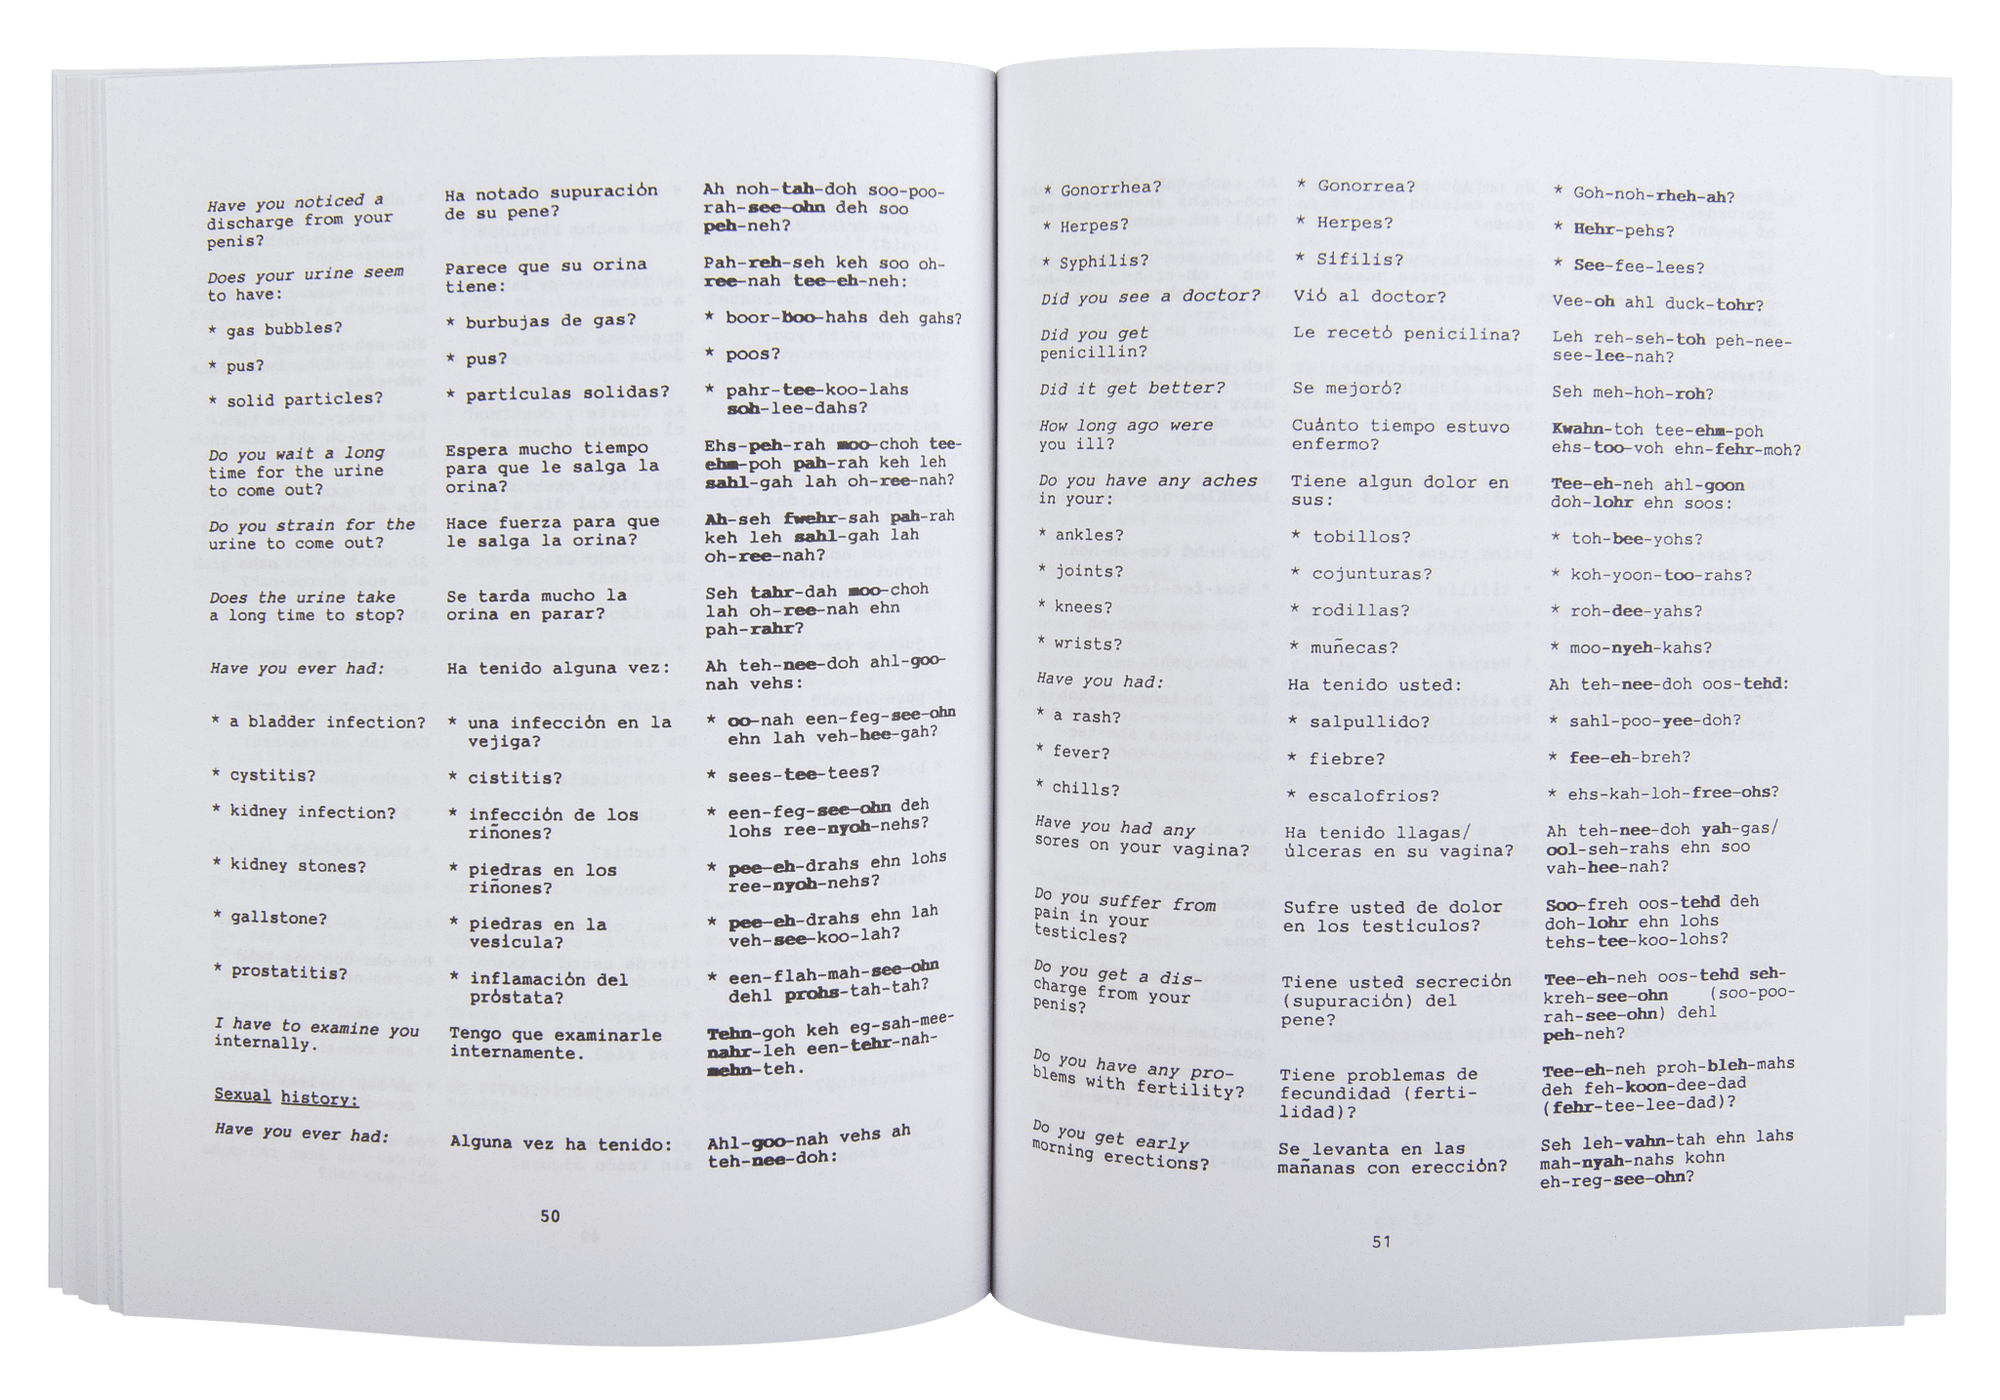 Have you noticed a
discharge from your
penis?
Ha notado supuración
de su pene?
Ah noh-tah-doh soo-poo-
rah-see-ohn deh soo
peh-neh?
Does your urine seem
to have:
Parece que su orina
tiene:
Pah-reh-seh keh soo oh-
ree-nah tee-eh-neh:
* gas bubbles?
* burbujas de gas?
* boor-boo-hahs deh gahs?
* pus?
* pus?
* poos?
* solid particles?
* partículas solidas?
* pahr-tee-koo-lahs
soh-lee-dahs?
Do you wait a long
time for the urine
to come out?
Espera mucho tiempo
para que le salga la
orina?
Ehs-peh-rah moo-choh tee-
ehm-poh pah-rah keh leh
sahl-gah lah oh-ree-nah?
Do you strain for the
urine to come out?
Hace fuerza para que
le salga la orina?
Ah-seh fwehr-sah pah-rah
keh leh sahl-gah lah
oh-ree-nah?
Does the urine take
a long time to stop?
Se tarda mucho la
orina en parar?
Seh tahr-dah moo-choh
lah oh-ree-nah ehn
pah-rahr?
Have you ever had:
Ha tenido alguna vez:
Ah teh-nee-doh ahl-goo-
nah vehs:
* a bladder infection?
* una infección en la
vejiga?
* oo-nah een-feg-see-ohn
ehn lah veh-hee-gah?
* cystitis?
* cistitis?
* sees-tee-tees?
* kidney infection?
* infección de los
riñones?
* een-feg-see-ohn deh
lohs ree-nyoh-nehs?
* kidney stones?
* piedras en los
riñones?
* pee-eh-drahs ehn lohs
ree-nyoh-nehs?
* gallstone?
* piedras en la
vesícula?
* pee-eh-drahs ehn lah
veh-see-koo-lah?
* prostatitis?
* inflamación del
próstata?
* een-flah-mah-see-ohn
dehl prohs-tah-tah?
I have to examine you
internally.
Tengo que examinarle
internamente.
Tehn-goh keh eg-sah-mee-
nahr-leh een-tehr-nah-
mehn-teh.
Sexual history:
Have you ever had:
Alguna vez ha tenido:
Ahl-goo-nah vehs ah
teh-nee-doh:
50
* Gonorrhea?
* Gonorrea?
* Goh-noh-rheh-ah?
* Herpes?
* Herpes?
* Hehr-pehs?
* Syphilis?
* Sifilis?
* See-fee-lees?
Did you see a doctor?
Vió al doctor?
Vee-oh ahl duck-tohr?
Did you get
penicillin?
Le recetó penicilina?
Leh reh-seh-toh peh-nee-
see-lee-nah?
Did it get better?
Se mejoró?
Seh meh-hoh-roh?
How long ago were
you ill?
Cuánto tiempo estuvo
enfermo?
Kwahn-toh tee-ehm-poh
ehs-too-voh ehn-fehr-moh?
Do you have any aches
in your:
Tiene algun dolor en
sus:
Tee-eh-neh ahl-goon
doh-lohr ehn soos:
* ankles?
* tobillos?
* toh-bee-yohs?
* joints?
* cojunturas?
* koh-yoon-too-rahs?
* knees?
* rodillas?
* roh-dee-yahs?
* wrists?
* muñecas?
* moo-nyeh-kahs?
Have you had:
Ha tenido usted:
Ah teh-nee-doh oos-tehd:
* a rash?
* salpullido?
* sahl-poo-yee-doh?
* fever?
* fiebre?
* fee-eh-breh?
* chills?
* escalofríos?
* ehs-kah-loh-free-ohs?
Have you had any
sores on your vagina?
Ha tenido llagas/
úlceras en su vagina?
Ah teh-nee-doh yah-gas/
ool-seh-rahs ehn soo
vah-hee-nah?
Do you suffer from
pain in your
testicles?
Sufre usted de dolor
en los testículos?
Soo-freh oos-tehd deh
doh-lohr ehn lohs
tehs-tee-koo-lohs?
Do you get a dis-
charge from your
penis?
Tiene usted secreción
(supuración) del
pene?
Tee-eh-neh oos-tehd seh-
kreh-see-ohn (soo-poo-
rah-see-ohn) dehl
peh-neh?
Do you have any pro-
blems with fertility?
Tiene problemas de
fecundidad (ferti-
lidad)?
Tee-eh-neh proh-bleh-mahs
deh feh-koon-dee-dad
(fehr-tee-lee-dad)?
Do you get early
morning erections?
Se levanta en las
mañanas con erección?
Seh leh-vahn-tah ehn lahs
mah-nyah-nahs kohn
eh-reg-see-ohn?
51